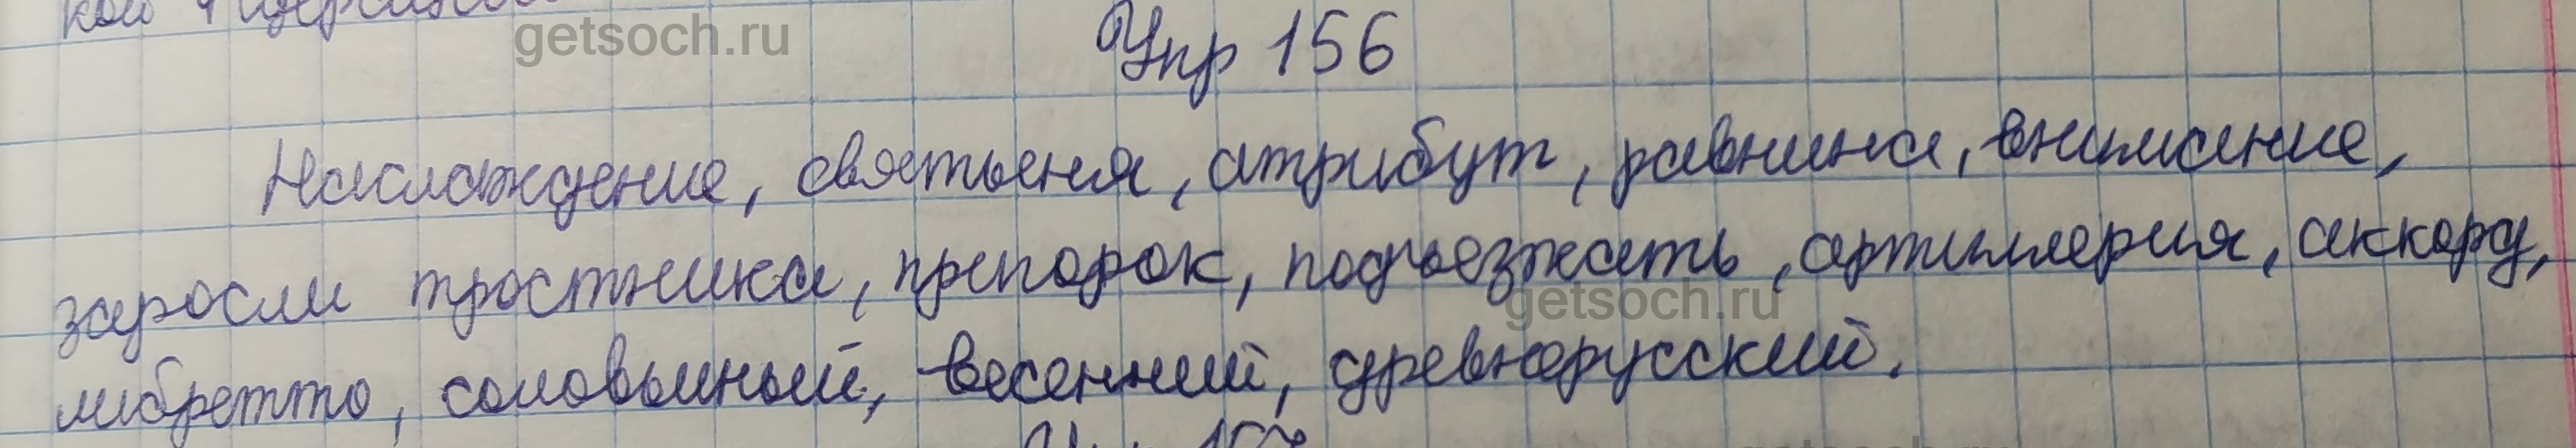 кой
getsoch.ru
Упр 156
Наслаждение, святыня, атрибут, равнина, внимание,
заросли тростника, припорок, подъезжать, артиллерия, аккорд,
getsoch.ru
либретто, соловьиный, весенний, древнерусский.
Упр 157